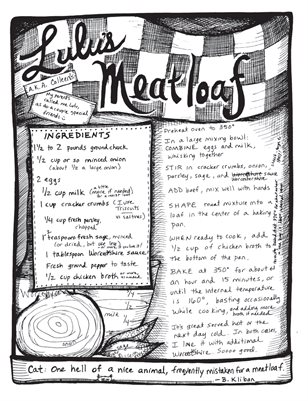 Lulu's
A.K.A. Colleen's
Meatloaf
My parents
called me Lulu,
as do a few special
friends
INGREDIENTS
1½ to 2 pounds ground chuck
½ cup or so minced onion
(about ½ a large onion)
2 eggs
½ cup milk (more if needed)
1 cup cracker crumbs (I use
Triscuits
or saltines)
¼ cup fresh parsley,
chopped
1 teaspoons fresh sage, minced
(or dried, but use less)
1 tablespoon Worcestershire sauce
Fresh ground pepper to taste
½ cup chicken broth
Preheat oven to 350°
In a large mixing bowl:
COMBINE eggs and milk,
whisking together
STIR in cracker crumbs, onion,
parsley, sage, and
ADD beef, mix well with hands
SHAPE meat mixture into a
loaf in the center of a baking
pan.
WHEN ready to cook, add
½ cup of chicken broth to
the bottom of the pan.
BAKE at 350° for about
an hour and 15 minutes, or
until the internal temperature
is 160°, basting occasionally
while cooking, and adding more
broth if needed.
It's great served hot or the
next day cold. In both cases,
I like it with additional
Worcestershire. Soooo good.
Cat: One hell of a nice animal, frequently mistaken for a meatloaf.
-B. Kliban